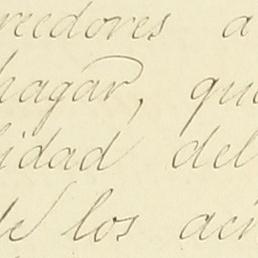 reedores a
pagar, que
lidad del
de los acr